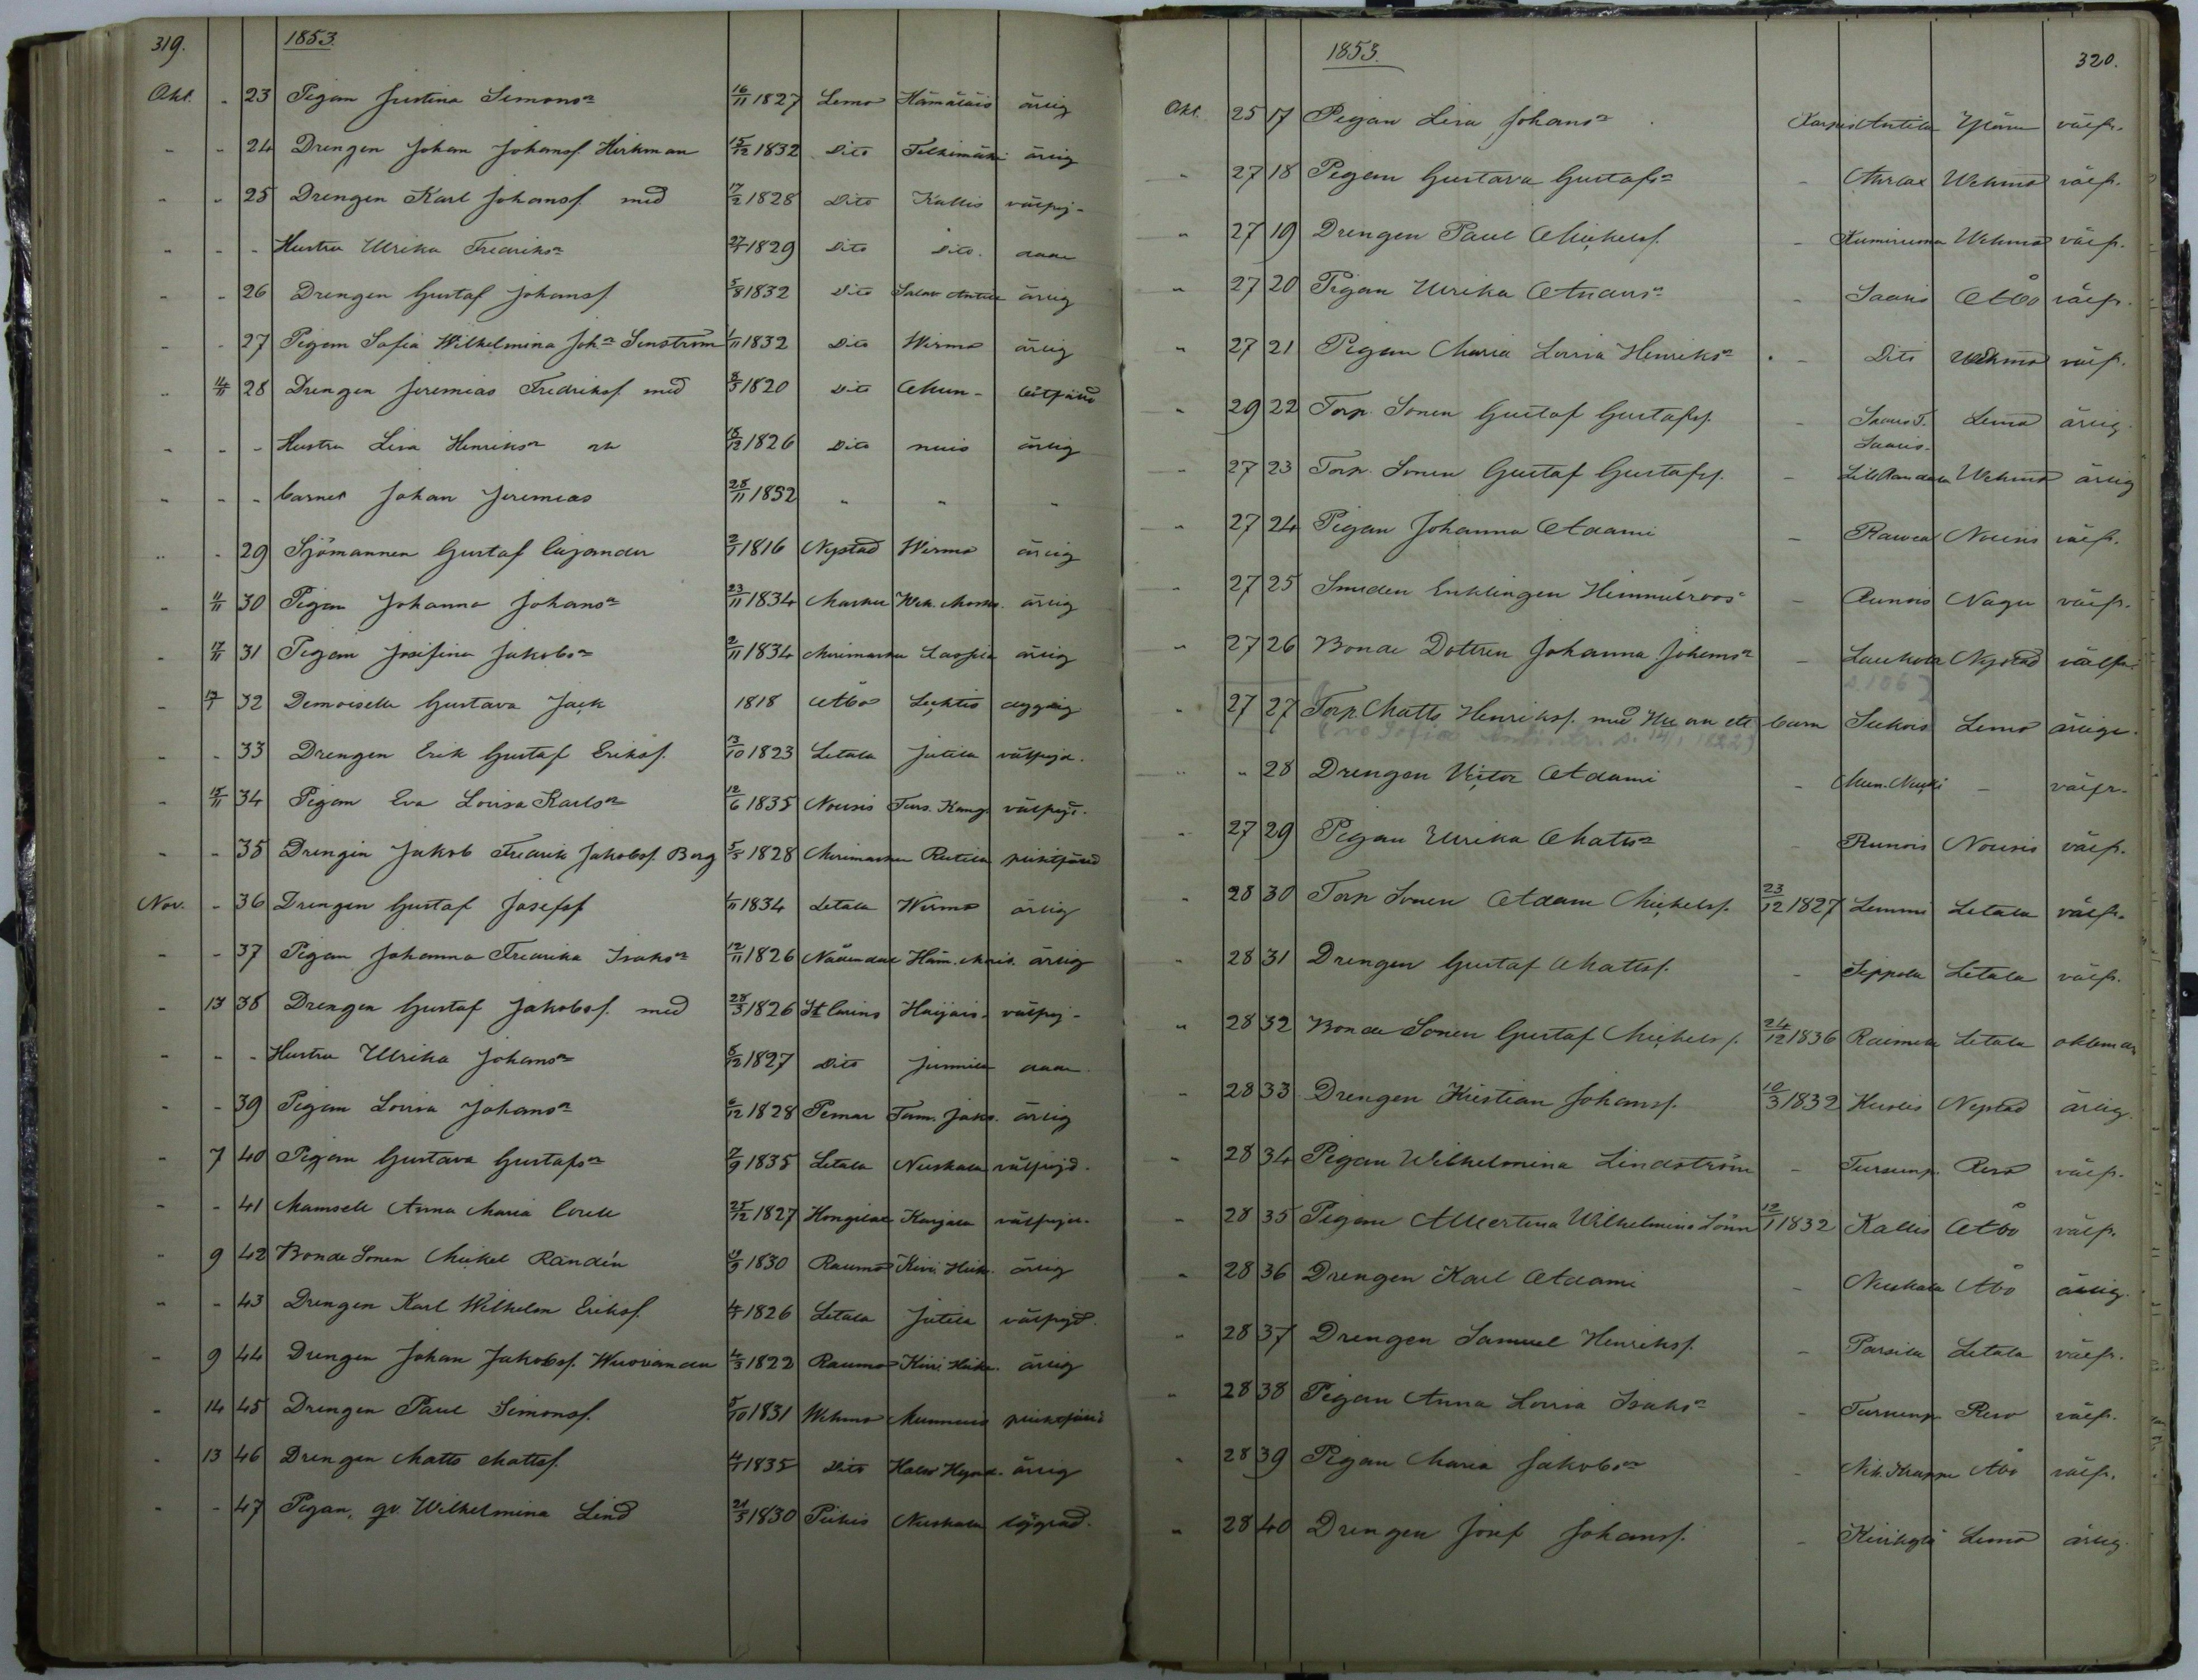 319. 1853.
Okt. - 23 Pigan Justina Simonsn 16/11 1827 Lemo Hämäläis ärlig
- - 24 Drengen Johan Johansf. Hirkman 15/12 1832 Dito Telkimäki ärlig
- - 25 Drengen Karl Johansf. med 17/2 1828 Dito Kallis välfrej-
- - - Hustru Ulrika Fredriksn 1829 Dito Dito. dade
- - 26 Drengen Gustaf Johansf 5/8 1832 Dito Antila ärlig
- - 27 Pigan Sofia Wilhelmina John Senström 1/11 1832 Dito Wirmo ärlig
- 28 Drengen Jeremias Fredriksf. med 8/3 1820 Dito
- - - Hustru Lisa Henriksn 18/12 1826 Dito nuis ärlig
- - - barnet Johan Jeremias 28/11 1852 - - -
- - 29 Sjömannen Gustaf Cajander 2/1 1816 Nystad Wirmo ärlig
- 11/11 30 Pigan Johanna Johansn 23/11 1834 Masku ärlig
- 17/11 31 Pigan Josefina Jakobsn 2/11 1834 Merimasku ärlig
- 17/1 32 Demoiselle Gustava Jack 1818 Åbo Lecktis dygdig
- - 33 Drengen Erik Gustaf Eriksf. 13/10 1823 Letala Jutila välfrejd.
- 15/11 34 Pigan Eva Lovisa Karlsn 12/6 1835 Nousis Turs. Kang. välfrejd.
- - 35 Drengen Jakob Fredrik Jakobsf. Berg 5/5 1828 Merimasku
Nov. - 36 Drengen Gustaf Josefsf 1/11 1834 Letala Wirmo ärlig
- - 37 Pigan Johanna Fredrika Isaksn 12/11 1826 Nådendal ärlig
- 13 38 Drengen Gustaf Jakobsf. med 28/3 1826 St Carins Haijais. välfrej-
- - - Hustru Ulrika Johansn 5/12 1827 Dito Junnila dade
- - 39 Pigan Lovisa Johansn 6/12 1828 Pemar Tam. Jaks. ärlig
- 7 40 Pigan Gustava Gustafsn 7/9 1835 Letala Nuskala välfrejd.
- - 41 Mamsell Anna Maria 25/12 1827 Karjala välfrejd.
- 9 42 Bonde Sonen Mickel Randén 1830 Raumo ärlig
- - 43 Drengen Karl Wilhelm Eriksf. 1826 Letala Jutila välfrejd.
- 9 44 Drengen Johan Jakobsf. 4/3 1822 Raumo ärlig
- 14 45 Drengen Paul Simonsf. 5/10 1831 Wehmo
- 13 46 Drengen Matts Mattsf. 4/1 1835 Dito ärlig
- - 47 Pigan, qv. Wilhelmina Lind 21/5 1830 Piikis Nuskala
1853. 320.
Okt. 25 17 Pigan Lisa Johansn Antila välfr.
- 27 18 Pigan Gustava Gustafsn - Wehmo välfr.
- 27 19 Drengen Paul Mickelsf. - Wehmo välfr.
- 27 20 Pigan Ulrika - Saaris Åbo välfr.
- 27 21 Pigan Maria Lovisa Henriksn - Dito Wehmo välfr.
- 29 22 Torp. Sonen Gustaf Gustafsf. - Saaris T. Saaris. Lemo ärlig.
- 27 23 Torp. Sonen Gustaf Gustafsf. - Wehmo ärlig
- 27 24 Pigan Johanna Adami - Nousis välfr.
- 27 25 Smeden Enklingen Himmelroos - Runois Nagu välfr.
- 27 26 Bonde Dottren Johanna Johansn - Laukola Nystad välfr.
s. 106
- 27 27 Torp. Matts Henriksf. med Hu och ett barn Lemo ärlige.
- - 28 Drengen Victor Adami - - välfr.
- 27 29 Pigan Ulrika Mattsn - Runois Nousis välfr.
- 28 30 Torp Sonen Adam Mickelsf. 23/12 1827 Lemmi Letala välfr.
- 28 31 Drengen Gustaf Mattsf. - Seppola Letala välfr.
- 28 32 Bonde Sonen Gustaf Mickelsf. 24/12 1836 Raimela Letala
- 28 33 Drengen Kristian Johansf. 10/3 1832 Nystad ärlig.
- 28 34 Pigan Wilhelmina Lindström - Tursunp. Reso välfr.
- 28 35 Pigan Albertina Wilhelmina Lönn 12/1 1832 Kallis Åbo välfr.
- 28 36 Drengen Karl Adami - Nuskala Åbo ärlig.
- 28 37 Drengen Samuel Henriksf. - Parsila Letala välfr.
- 28 38 Pigan Anna Lovisa Isaksn - Tursunp. Reso välfr.
- 28 39 Pigan Maria Jakobsn - Åbo välfr.
- 28 40 Drengen Josef Johansf. - Kivikylä Lemo ärlig.